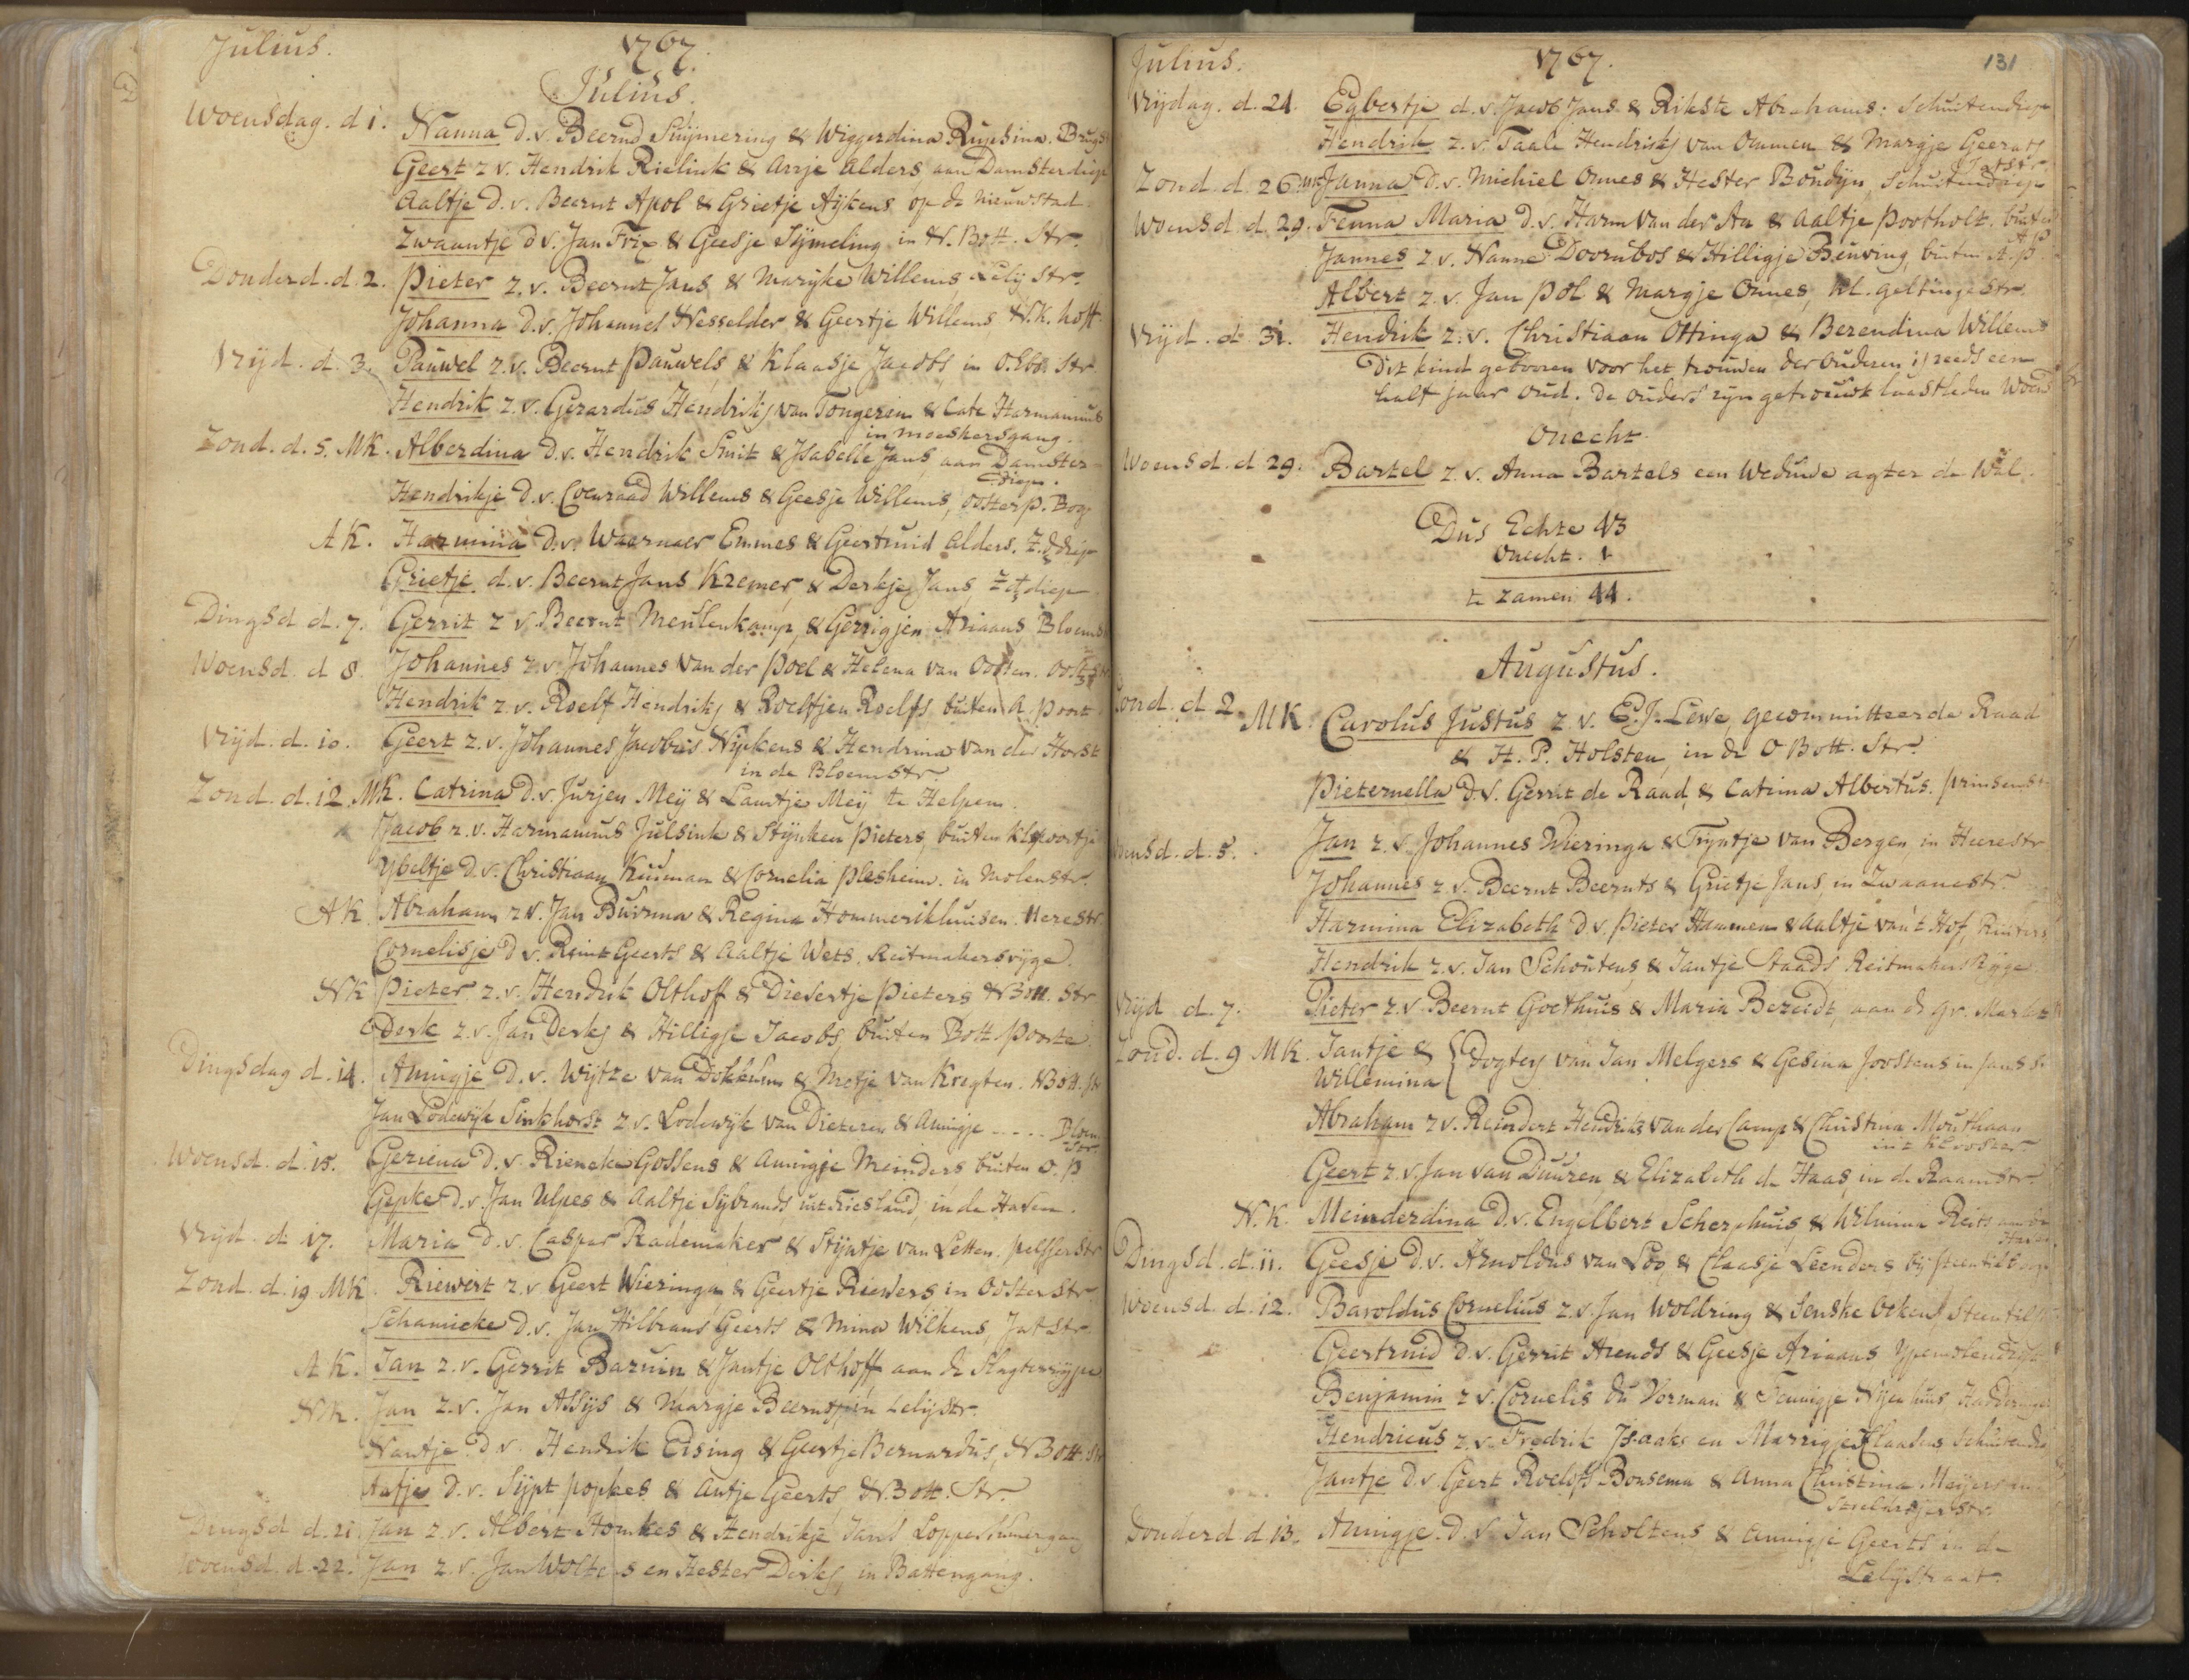 Julius. 1767.
Julius.
Woensdag. d 1. Nanna D. v. Beernd Suijmering & Wiggerdina Rupsina. Brugs
Geert z v. Hendrik Rielink & Arrje Alders, aan Damsterdiep
Aaltje D. v. Beernt Apol & Grietje Aijkens op de Nieuwstad.
Zwaantje d v. Jan Frix & Geesje Sijmeling in N. Bott. Str.
Donderd. d. 2. Pieter z. v. Beernt Jans & Marijke Willems Lelij Str.
Johanna D. v. Johannes Nesselder & Geertje Willems N. K. hoff.
Vrijd. d. 3. Pauwel z. v. Beernt Pauwels & Klaasje Jacobs, in O. Ebb. Str.
Hendrik z. v. Gerardus Hendriks van Tongeren & Cate Harmannus
in Moeskersgang.
Zond. d. 5. MK. Alberdina D. v. Hendrik Smit & Isabelle Jans aan Damster
diep.
Hendrikje D. v. Coenraad Willems & Geesje Willems, Oosterp. Bog
AK. Harmina D. v. Waarnaer Emmes & Geertruid Alders. Z. diep
Grietje d. v. Beernt Jans Kremer, & Derkje Jans, Z diep
Dingsd d. 7. Gerrit z v. Beernt Meulenkamp, & Gerrigjen Ariaans, Bloems
Woensd. d 8. Johannes z v. Johannes van der Poel & Helena van Oosten. Oost Str
Hendrik z. v. Roelf Hendriks & Roelfjen Roelfs buiten A. poort.
Vrijd. d. 10. Geert z. v. Johannes Jacobus Nijkens & Hendrina van der Horst
in de Bloemstr.
Zond. d. 12. MK. Catrina D. v. Jurjen Meij & Lamtje Meij te Helpen.
Jacob z. v. Harmannus Julsink & Stijnken Pieters, buiten Kl. poortje
Ybeltje D. v. Christiaan Kuiman & Cornelia Plesheim. in Molenstr.
AK Abraham z v. Jan Buirma & Regina Hommerikhuisen. Herestr.
Cornelisje D v. Reint Geerts & Aaltje Wets. Reitmakersrijge.
NK Pieter z. v. Hendrik Olthoff & Diewertje Pieters N Bott. Str
Derk z. v. Jan Derks & Hilligje Jacobs, buiten Bott. Poorte.
Dingsdag d. 14. Annigje D. v. Wijtze van Dokkum & Metje van Kregten. N Bott. Str
Jan Lodewijk Sinkhorst z v. Lodewijk van Dieteren & Annigje ..... Bloem
Str.
Woensd. d. 15. Geriena D. v. Rieneke Gossens & Annigje Meinders, buiten O. P
Gepke D. v. Jan Ulpes & Aaltje Sijbrands, uit Friesland, in de Haven.
Vrijd. d. 17. Maria D. v. Caspar Rademaker & Stijntje van Letten. Pelsterstr
Zond. d. 19 MK. Riewert z. v Geert Wieringa & Geertje Riewers in Oosterstr
Schamicke D. v. Jan Hilbrans Geerts & Mina Wilkens, Jatstr.
AK. Jan z. v. Gerrit Baruin & Jantje Olthoff aan de Slagterrijpe
NK. Jan z. v. Jan Assijs & Margje Beernts, in Lelijstr.
Nantje D v. Hendrik Eising & Geertje Bernardus, N Bott. Str
Aafje D. v. Sijpt Popkes & Antje Geerts N Bott. Str.
Dingsd d. 21 Jan z. v. Albert Homkes & Hendrikje Jans Loppersumergang
Woensd. d. 22. Jan z. v. Jan Woltes en Hester Derks, in Battengang.
Julius. 1767. 131
Vrijdag. d. 24. Egbertje d. v. Jacob Jans & Rikste Abrahams. Schuitendiep
Hendrik z. v. Taale Hendriks van Ommen & Margje Geerats
Jatstr.
Zond. d. 26 Janna D. v. Michiel Onnes & Hester Boudijn, Schuitendiep
Woensd. d. 29. Fenna Maria D. v. Harm van der Aa & Aaltje Pootholt. buiten
A P
Jannes z v. Nanne Doornbos & Hilligje Beuving, buiten A. P.
Albert z. v. Jan Pol & Margje Onnes, Kl. geltinge Str.
Vrijd. d. 31. Hendrik z. v. Christiaan Ottinga & Berendina Willems
Dit kind gebooren voor het trouwen der Ouderen is reeds een
half jaar oud. De ouders zijn getrouwt laastleden Woensd
Onecht.
Woensd. d 29. Bartel z. v. Anna Bartels een Weduwe agter de Wal.
Dus Echte 43
Onecht. 1
te zamen 44.
Augustus.
Zond. d 2 MK. Carolus Justus z v. E. J. Lewe, gecommitteerde Raad
& H. P. Holsten, in de O Bott. Str.
Pieternella D. v. Gerrit de Raad, & Catrina Albertus. Prinsenstr
Woensd. d. 5. Jan z. v. Johannes Wieringa & Trijntje van Bergen, in Heerestr
Johannes z v. Beernt Beernts & Grietje Jans, in Zwaanestr.
Harmina Elizabeth D v. Pieter Hammen & Aaltje van 't Hof,
Hendrik z. v. Jan Schoutens, & Jantje Staads Reitmakers Rijge
Vrijd d. 7. Pieter z v. Beernt Goethuis & Maria Bezeidt, aan de gr. Markt
Zond. d. 9 MK. Jantje & Willemina Dogters van Jan Melgers & Gesina Joostens in Jans Str
Abraham z v. Reindert Hendriks van der Camp & Christina Mouthaan
in 't Klooster.
Geert z. v. Jan van Duuren, & Elizabeth de Haas, in de Raamstr.
N. K. Meinderdina D. v. Engelbert Scherphuis, & Wilmina Reits aan de
Haven
Dingsd. d. 11. Geesje D. v. Arnoldus van Loo, & Claasje Leenders bij Steentilboog
Woensd. d. 12. Baroldus Cornelius z. v. Jan Woldring & Senske Ockens, Steentil
Geertruid D. v. Gerrit Arends & Geesje Ariaans
Benjamin z v. Cornelis du Vorman & Fennigje Nijenhuis
Hendricus z. v. Fredrik Isaaks en Marrigje Claasens Schuitendiep
Jantje D. v. Geert Roelofs Bousema & Anna Christina Meijers in
Stoeldrajerstr.
Donderd d 13. Annigje. D. v. Jan Scholtens & Annigje Geerts in de
Lelijstraat.